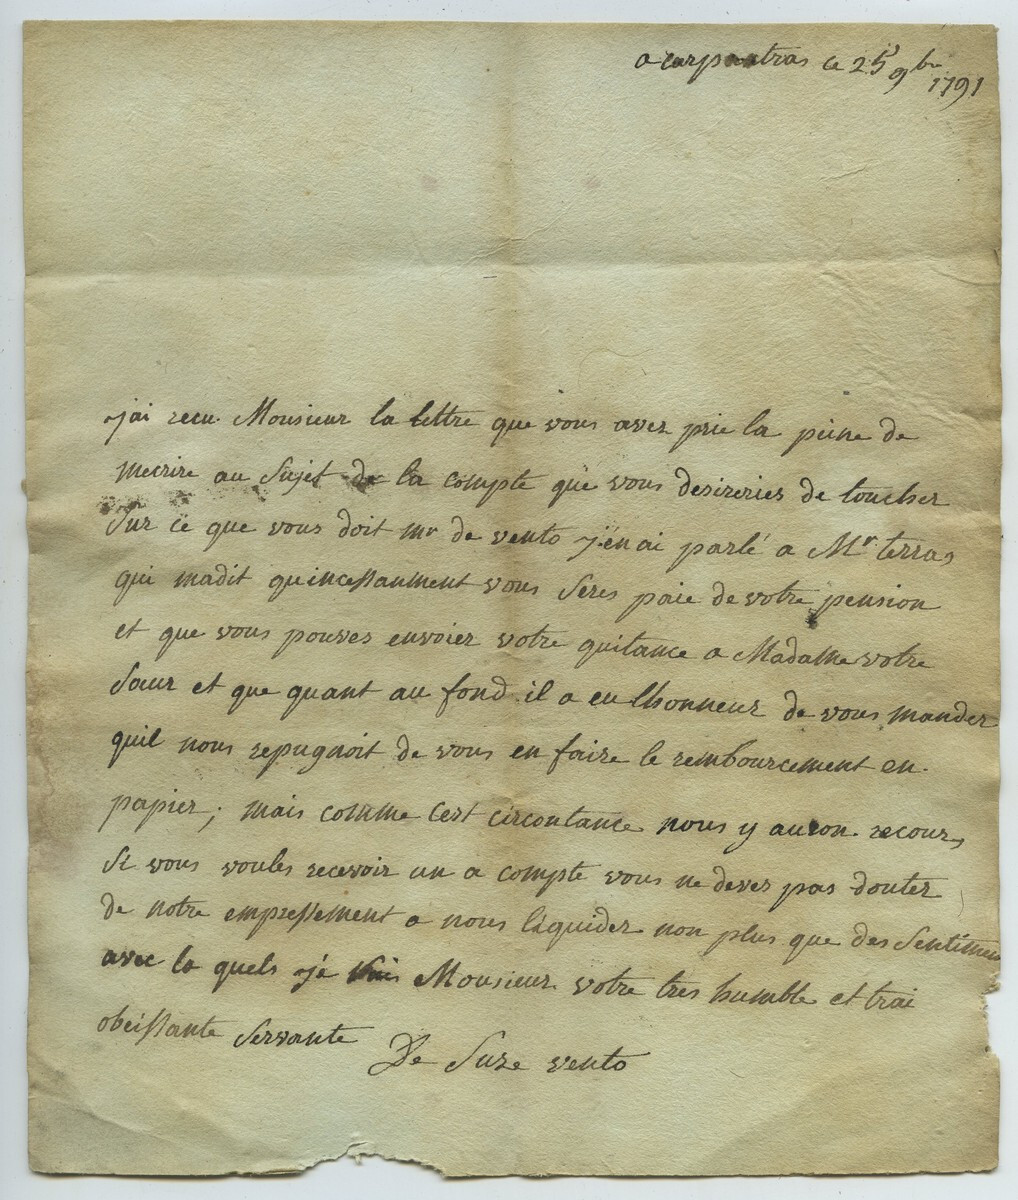 a carpentras ce 25 9bre 1791
jai recu Monsieur la lettre que vous avez prie la peine de
mecrire au Sujet de la compte que vous desireries de toucher
Sur ce que vous doit mr de vento j'en ai parlé a Mr terras
qui madit quincessanment vous Seres paie de votre pension
et que vous pouves envoier votre quitance a Madame votre
Sœur et que quant au fond il a eu lhonneur de vous mander
quil nous repugnoit de vous en faire le rembourcement en
papier; mais comme cest circontance nous y auron recour
Si vous voules recevoir un a compte vous ne deves pas douter
de notre empressement a nous liquider non plus que des Sentimens
avec la quels je suis Monsieur votre tres humble et trai
obeissante Servante
De Suze vento